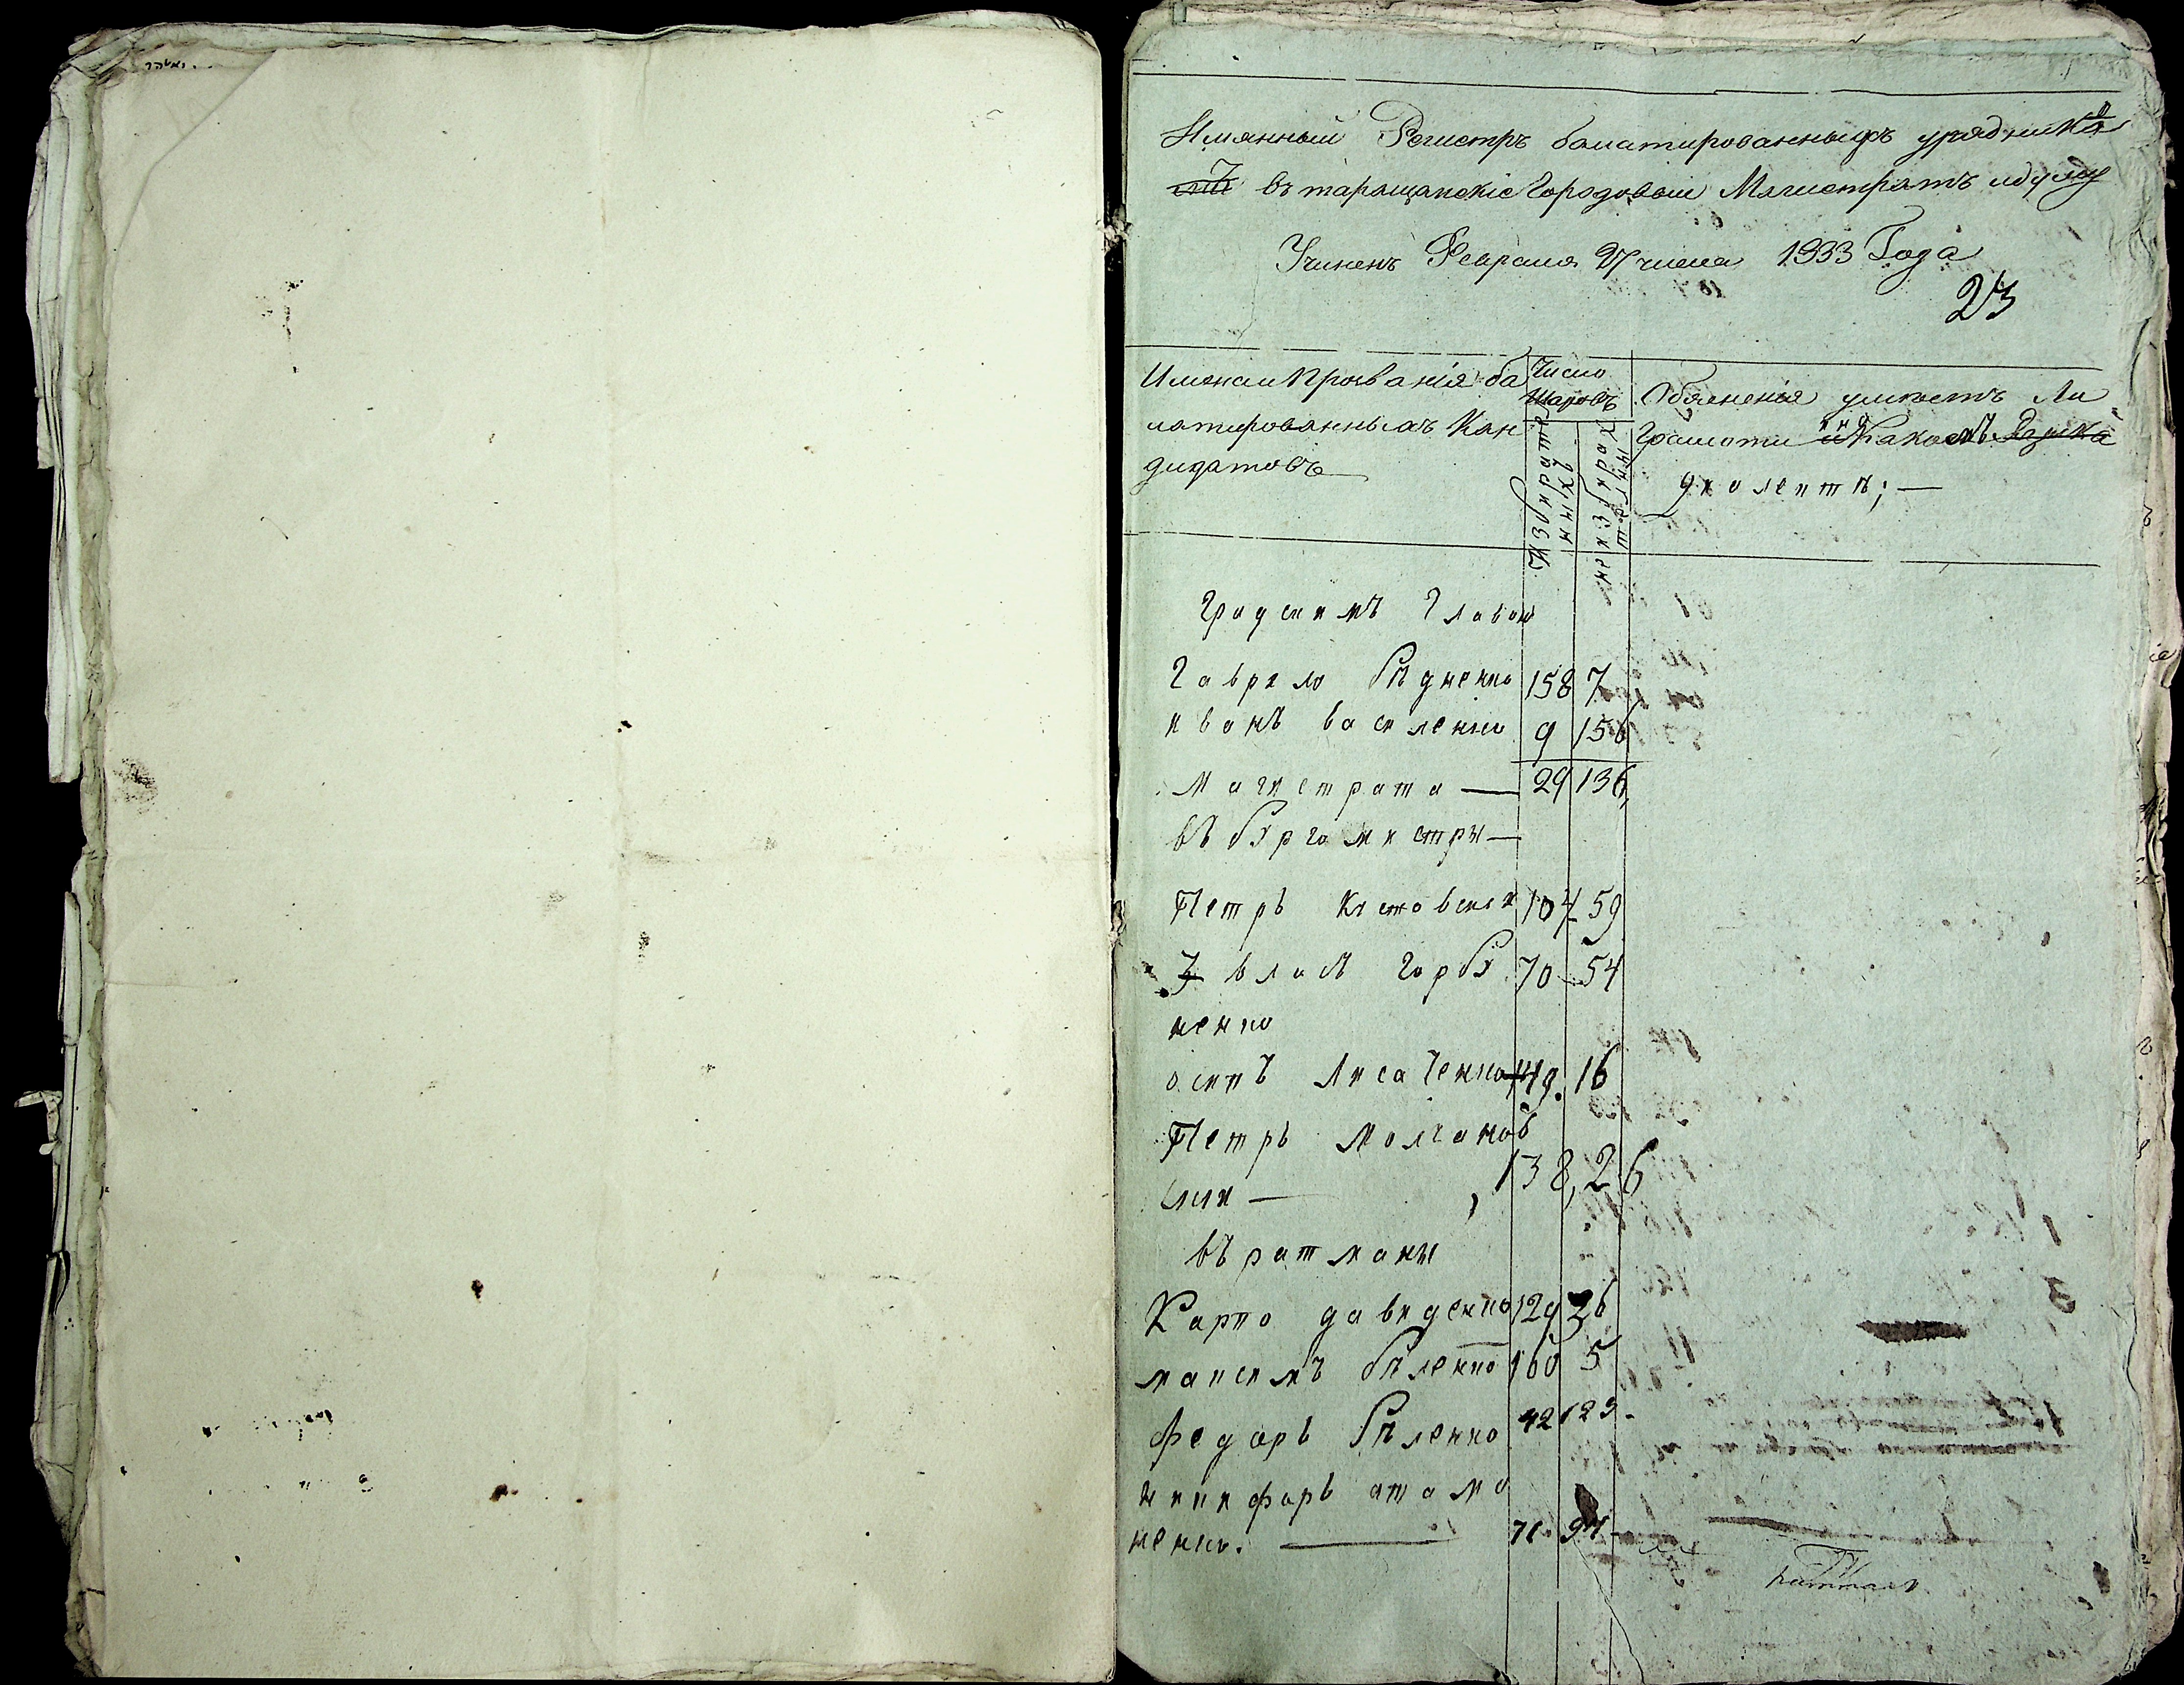 Имянный Регистръ балатированныхъ урядника
въ таращанскіе Городовыи Магистратъ и думу
Учиненъ Февраля 27 числа 1833 Года
23
Имена и Прозванія ба
латированныхъ Кан
дидатовъ
Число
Шаровъ
Обяененія умѣетъ Ли
Грамоти и Какомъ
градскимъ Главою
Гаврило Бѣдненко 158 7
иванъ василенко 9 156
Магистрата — 29 136
въ бургомистри —
Петръ Кистовскіи 104 59
власъ горбу 70 54
ненко
осипъ Лисаченко 149. 16
Петръ молчанов
скии — 138, 26
въ ратманы
Карпо давиденко 129 36
максимъ бѣленко 160 5
федоръ Бѣленко 42 123-
никифоръ атама
ненко. — 71. 94-